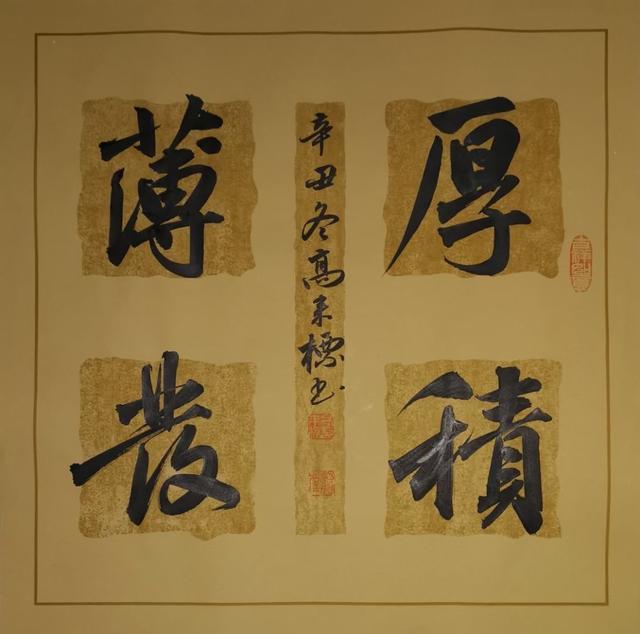 厚積
薄發
辛丑冬高来標书